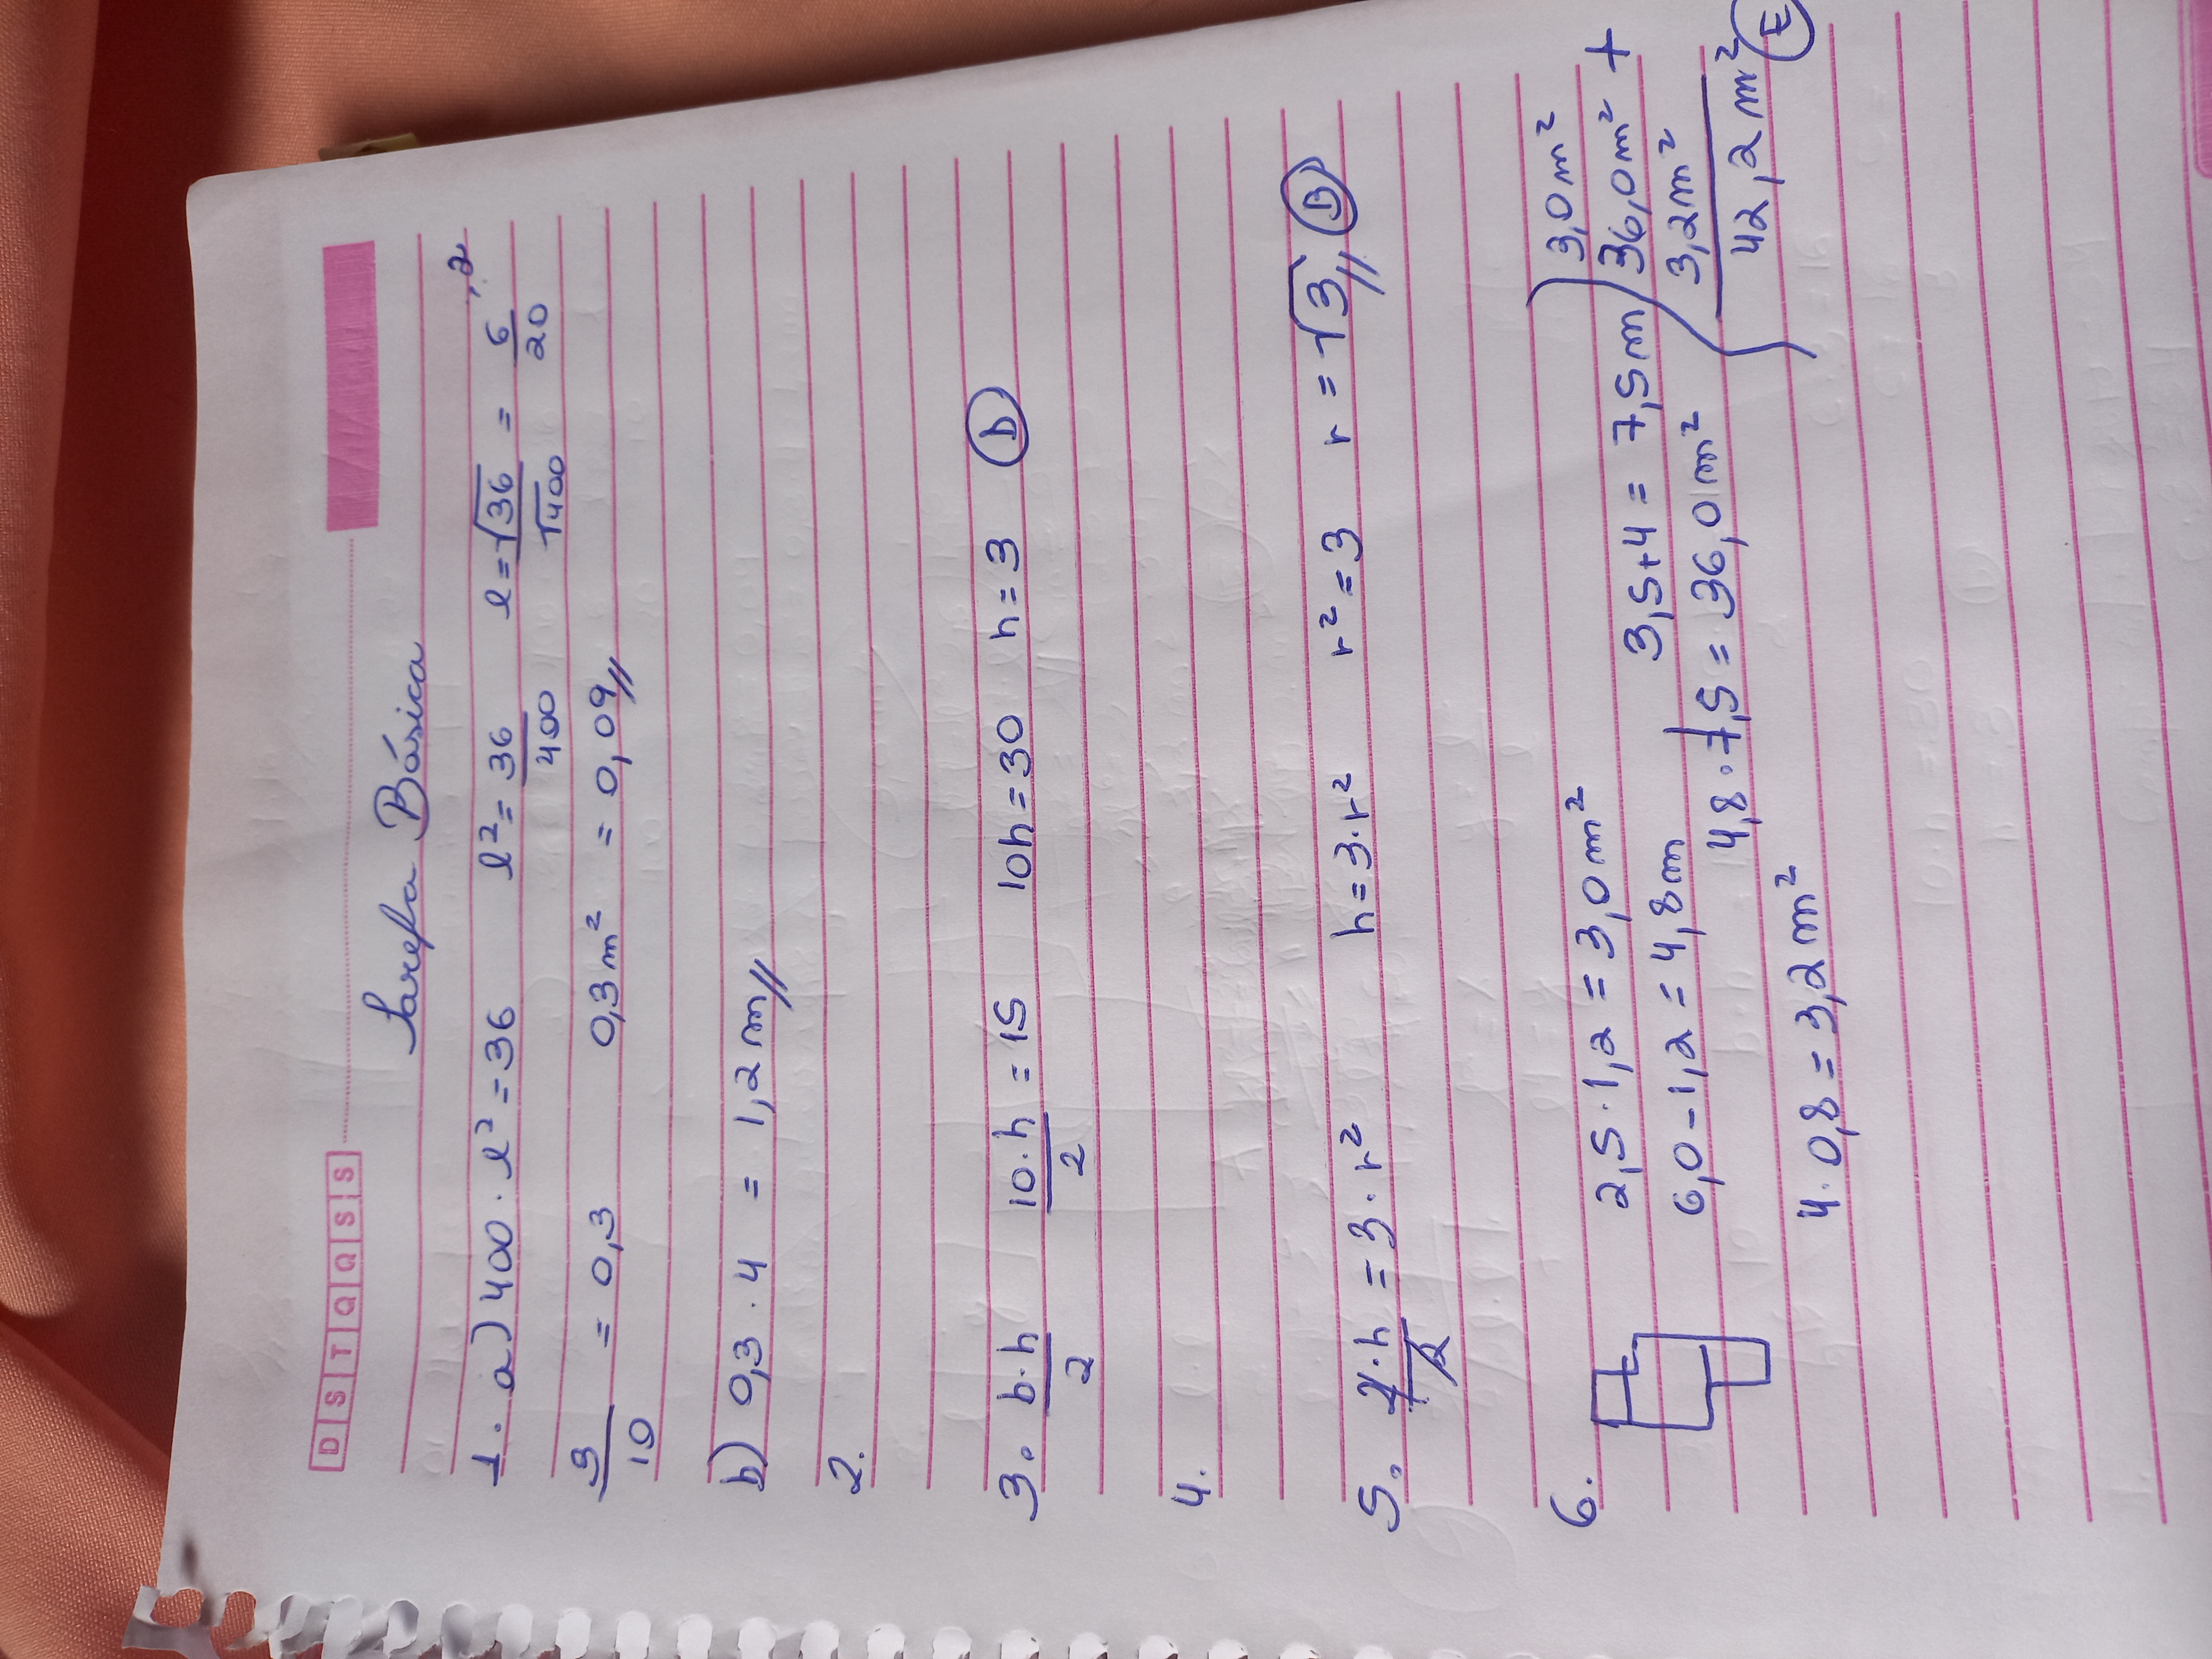 D S T Q Q S S
Tarefa Básica
1. a) 400 · l² = 36 l² = 36/400 l = √36/√400 = 6/20 :2
3/10 = 0,3 0,3 m² = 0,09//
b) 0,3 · 4 = 1,2 m//
2.
3. b·h/2 10·h/2 = 15 10h = 30 h = 3 (D)
4.
5. 2·h/2 = 3 · r² h = 3·r² r² = 3 r = √3// (B)
6.
2,5 · 1,2 = 3,0 m²
6,0 - 1,2 = 4,8 m
3,5 + 4 = 7,5 m
4,8 · 7,5 = 36,0 m²
4 · 0,8 = 3,2 m²
3,0 m²
36,0 m² +
3,2 m²
42,2 m²
(E)